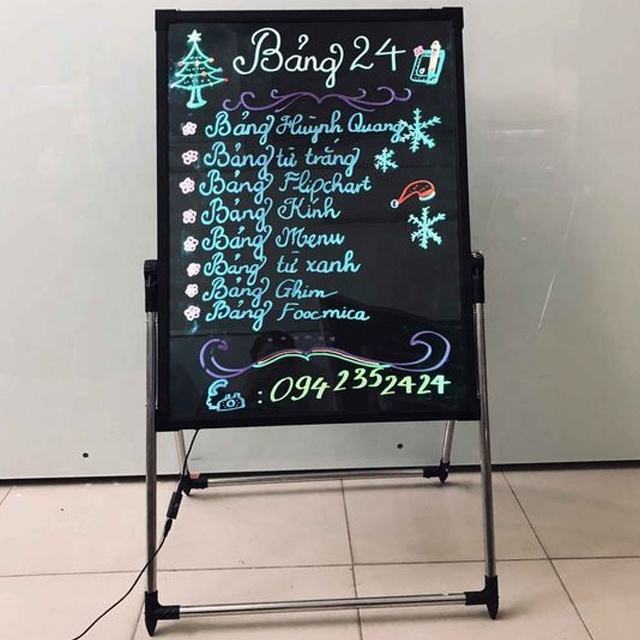 Bảng 24
Bảng Huỳnh Quang
Bảng từ trắng
Bảng Flipchart
Bảng Kính
Bảng Menu
Bảng từ xanh
Bảng Ghim
Bảng Foocmica
: 094 235 2424